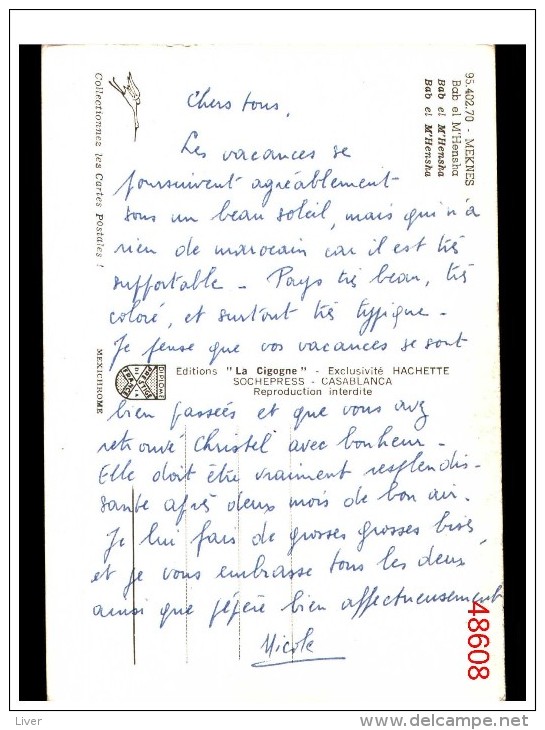 Chers tous,
Les vacances se
poursuivent agréablement
sous un beau soleil, mais qui n'a
rien de marocain car il est très
supportable - Pays très beau, très
coloré, et surtout très typique -
Je pense que vos vacances se sont
Editions "La Cigogne" - Exclusivité HACHETTE
SOCHEPRESS - CASABLANCA
Reproduction interdite
bien passées et que vous avez
retrouvé Christel avec bonheur -
Elle doit être vraiment resplendis-
sante après deux mois de bon air.
Je lui fais de grosses grosses bises,
et je vous embrasse tous les deux
ainsi que pépère bien affectueusement
Nicole
95.402.70 - MEKNES
Bab el M'Hensha
Bab el M'Hensha
Bab el M'Hensha
Collectionnez les Cartes Postales !
MEXICHROME
DIPLOME
PRESTIGE
DE LA
FRANCE
48608
Liver
www.delcampe.net